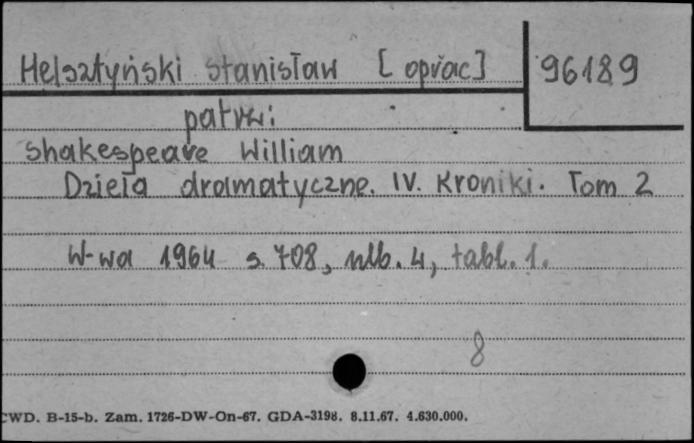 Helsztyński Stanisław [oprac] 96189
patrz:
Shakespeare William
Dzieła dramatyczne. IV. Kroniki. Tom 2
W-wa 1964 s. 708, nlb. 4, tabl. 1.
8
CWD. B-15-b. Zam. 1726-DW-On-67. GDA-3198. 8.11.67. 4.630.000.